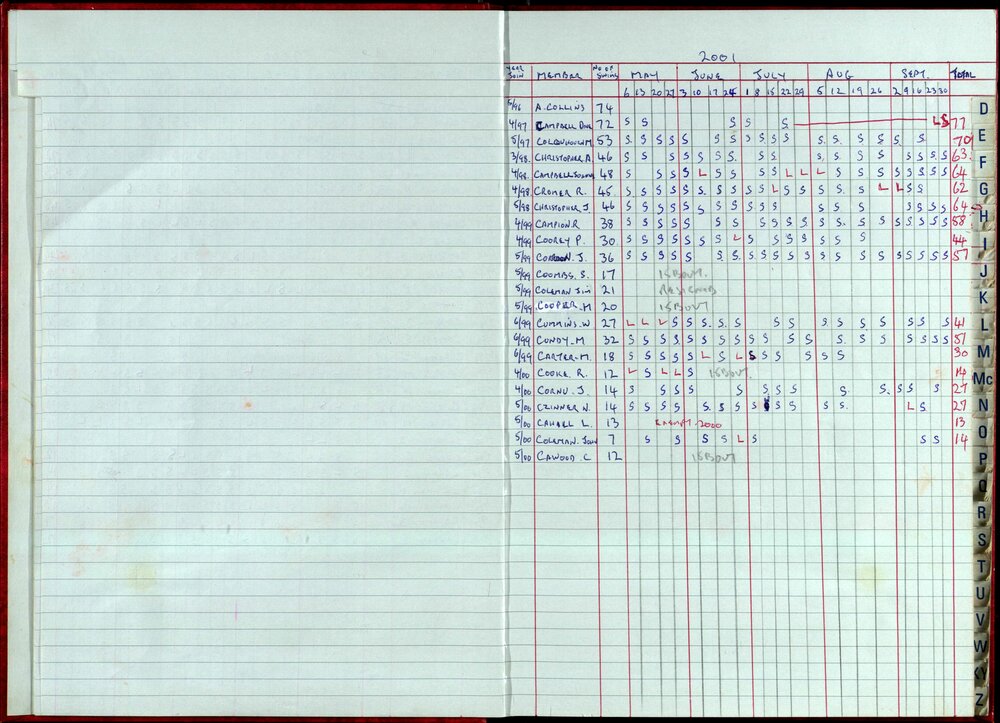 2001
YEAR JOIN MEMBER NO OF SWIMS MAY JUNE JULY AUG SEPT. TOTAL
6 13 20 27 3 10 17 24 1 8 15 22 29 5 12 19 26 2 9 16 23 30
5/96 A. COLLINS 74
4/97 CAMPBELL 72 S S S S S L S 77
5/97 53 S S S S S S S S S S S S S. S S S S 70
3/98. CHRISTOPHER. A. 46 S S S S S S S S S. S S S S S S S 63
4/98. CAMPBELL 48 S S S S L S S S S L L L S S S S S S S S 64
4/98 CROMER R. 45 S S S S S S S S S S L S S S S S L L S S 62
5/98 CHRISTOPHER J. 46 S S S S S S S S S S S S S S S S 64
4/99 CAMPION. R 38 S S S S S S S S S S S S S S S S S S S S 58
4/99 COOREY P. 30 S S S S S S S L S S S S S S S 44
5/99 J. 36 S S S S S S S S S S S S S S S S S S S S S 57
5/99 COOMBS. S. 17 ISBOUT.
5/99 COLEMAN JIM 21 RESIGNED
5/99 COOPER. M 20 ISBOUT
6/99 CUMMINS. W 27 L L L S S S S S S S S S S S S S S 41
6/99 CONDY. M 32 S S S S S S S S S S S S S S S S S S S 51
6/99 CARTER. M. 18 S S S S S L S L S S S S S S 30
4/00 COOKE. R. 12 L S L L S ISBOUT. 14
4/00 CORNU. J. 14 S S S S S S S S S S. S S S 27
5/00 CZINNER N. 14 S S S S S. S S S S S S S S S L S 29
5/00 CAHALL L. 13 EXEMPT. 2000 13
5/00 COLEMAN. JOHN 7 S S S S L S S S 14
5/00 CAWOOD. C 12 ISBOUT
D
E
F
G
H
I
J
K
L
M
Mc
N
O
P
Q
R
S
T
U
V
W
XY
Z